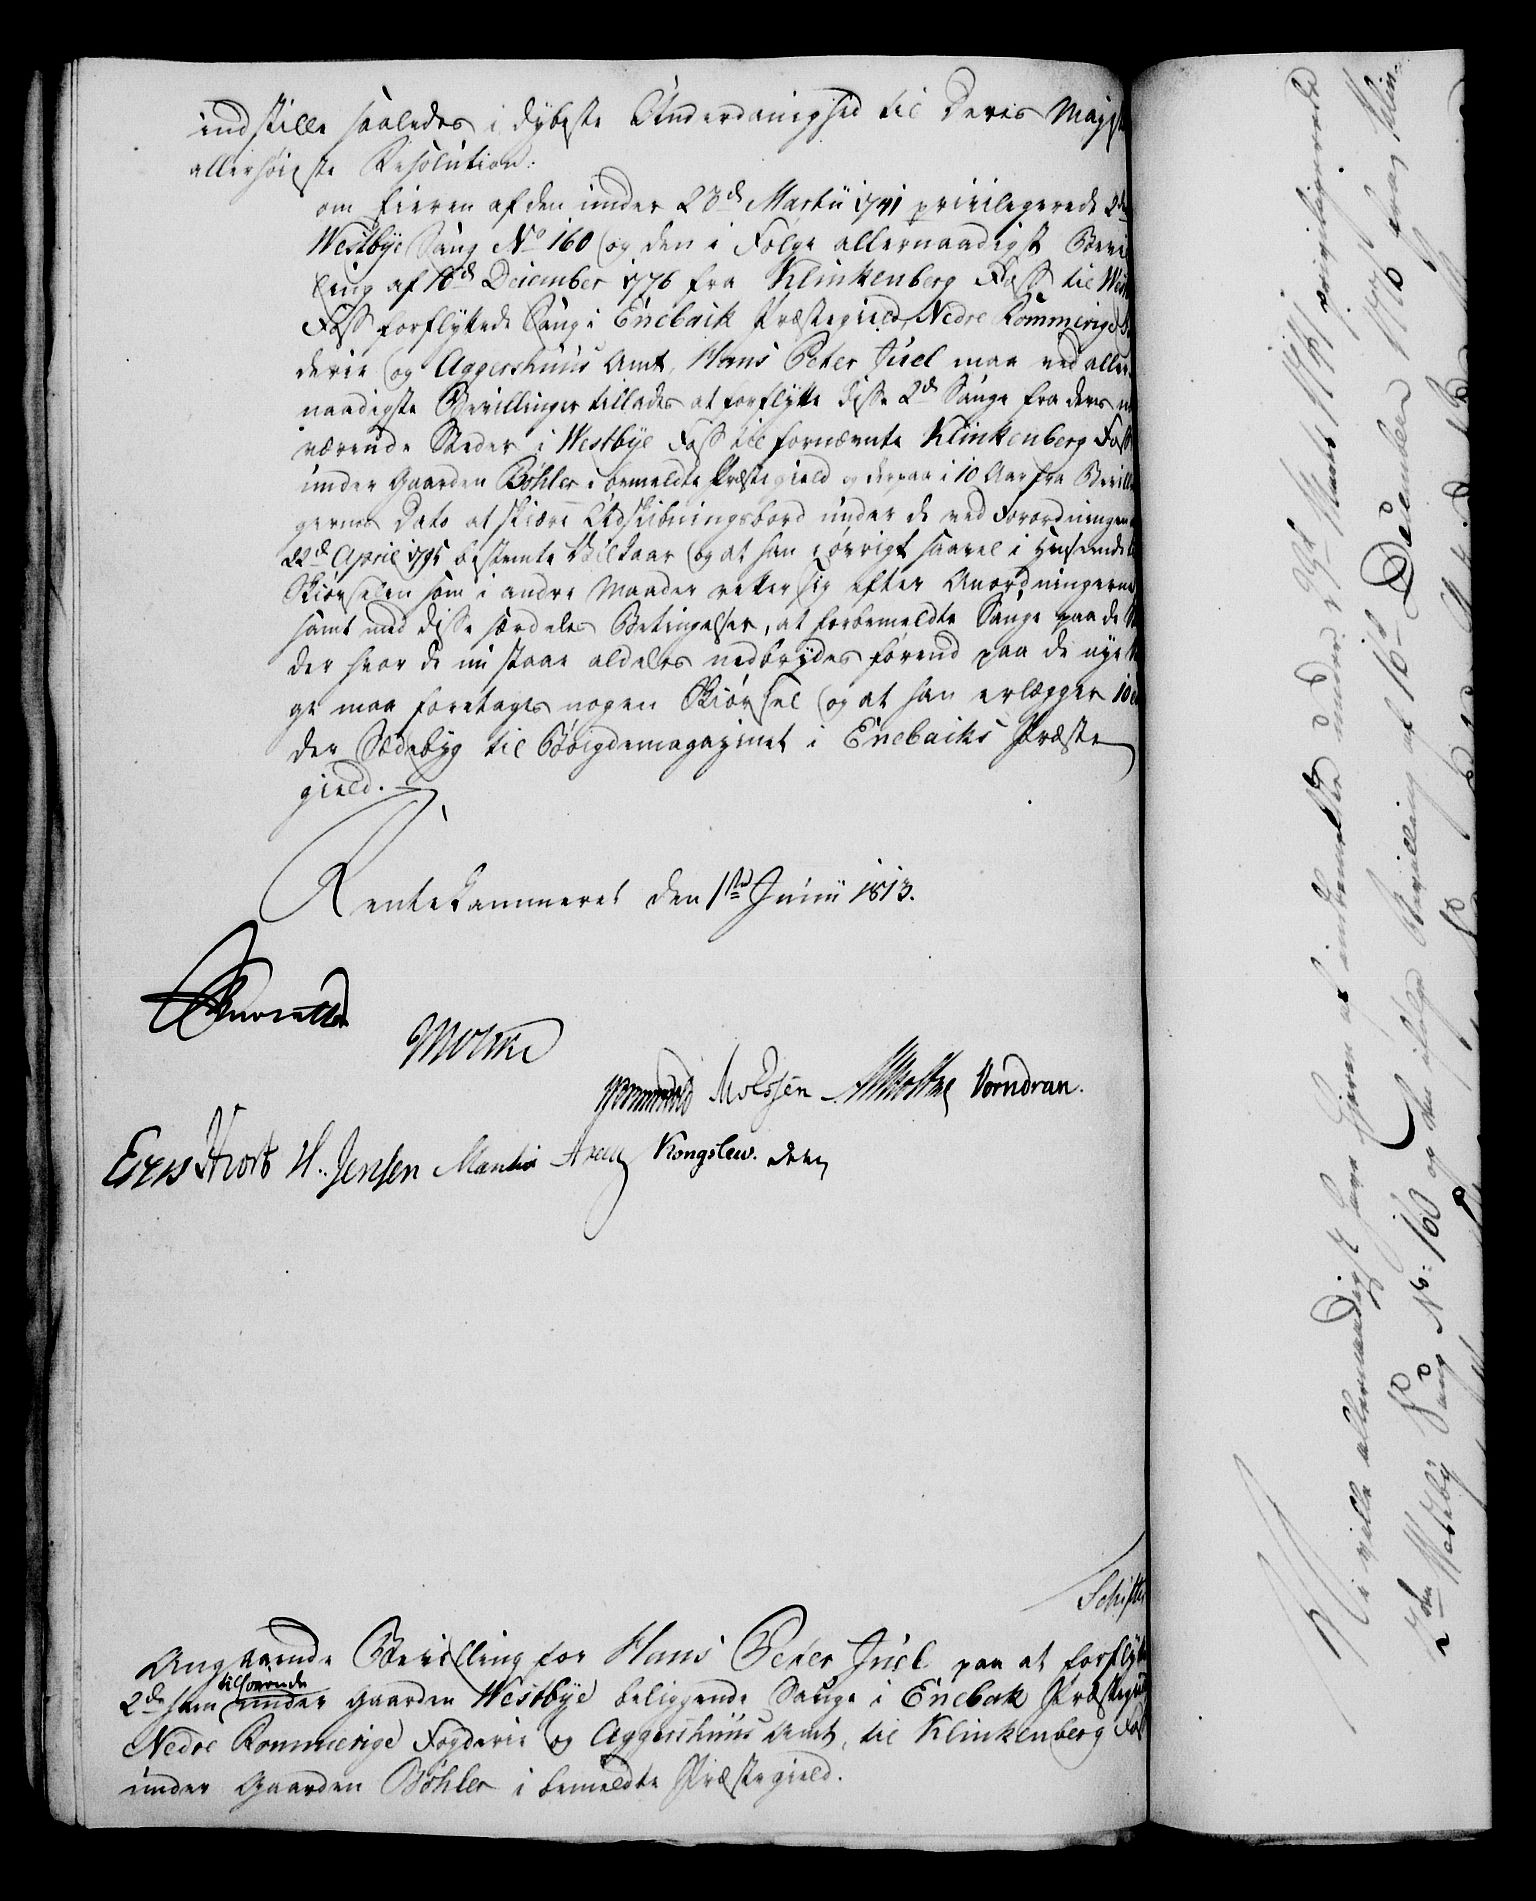 indstille saaledes i dybeste Underdanighed til Deres Majest
allerhøieste Resolution:
om Eieren af den under 23d Martii 1741 privilegerede 2den
Westbye Saug No 160 og den i Følge allernaadigst Bevil
ling af 16d December 1776 fra Klinkenberg Foss til West
Foss forflyttede Saug i Enebaik Præstegield, Nedre Rommerige Fog
derie og Aggershuus Amt, Hans Peter Juel maa ved aller
naadigste Bevillinger tillades at forflytte disse 2de Sauge fra deres nu
værende Steder i Westbye Foss til fornævnte Klinkenberg Foss
under Gaarden Böhler i bemeldte Præstegield og derpaa i 10 Aar fra Bevillin
gernes Dato at skiære Udskibningsbord under de ved Forordningen
22d April 1795 bestemte Vilkaar og at han iøvrigt saavel i Henseende
Skiørselen som i andre Maader retter sig efter Anordningerne
samt med disse særdeles Betingelser, at forbemeldte Sauge paa de
der hvor de nu staae aldeles nedbrydes førend paa de nye
ge maa foretages nogen Skiørsel og at han erlægger 10
der Sædebyg til Bøigdemagazinet i Enebaiks Præste
gield.
Rentekammeret den 1ste Junii 1813.
Moltke
Vorndran.
Hiort H. Jensen Kongslew.
Schifter
Angaaende Bevilling for Hans Peter Juel paa at forflytte
tilhørende
2de ham under Gaarden Westbye beliggende Sauge i Enebak Præstegield
Nedre Rommerige Fogderie og Aggershuus Amt, til Klinkenberg Foss
under Gaarden Böhler i bemeldte Præstegield.
Vi ville allernaadigst have Eieren af indbemeldte under 23de Martii 1741 privilegerede
2den Westbÿ Saug No: 160 og den ifølge Bevilling af 16de December 1776 fra Klin-